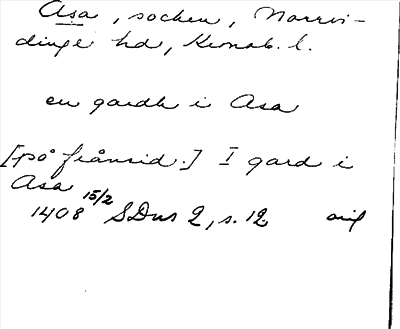 Asa, socken, Norrvi-
dinge hd, Kronob. l.
en gardh i Asa
[på frånsid.] I gard i
Asa
15/2
1408 SDns 2, s. 12